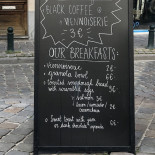 BLACK COFFEE
+ VIENNOISERIE
3€
OUR BREAKFASTS:
* Viennoiserie 2€
* granola bowl 6€
* toasted sourdough bread
with scrambled eggs 6€
+ salmon 3€
+ bacon/avocado/
2€
* sweet toast with jam
or dark chocolate spread